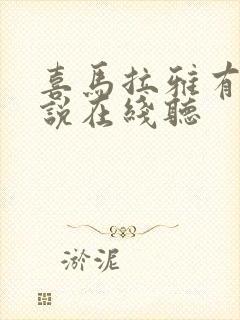 喜馬拉雅有
說在綫聽
淤泥